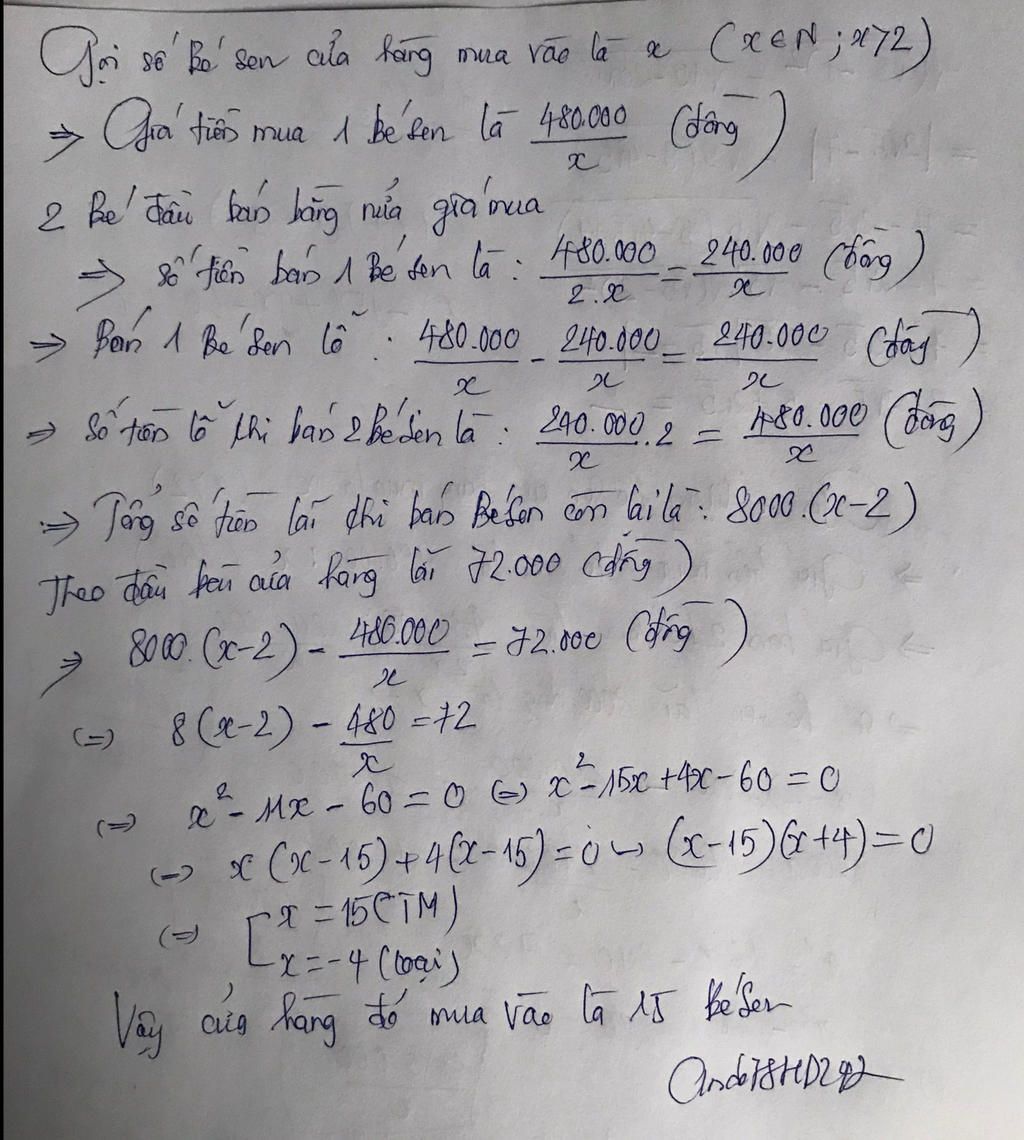 Gọi số Bé sen cửa hàng mua vào là x (x ∈ N ; x > 2)
=> Giá tiền mua 1 Bé sen là 480.000/x (đồng)
2 Bé đầu bán bằng nửa giá mua
=> số tiền bán 1 Bé sen là : 480.000/2.x = 240.000/x (đồng)
=> Bán 1 Bé sen lỗ : 480.000/x - 240.000/x = 240.000/x (đồng)
=> Số tiền lỗ khi bán 2 Bé sen là : 240.000/x . 2 = 480.000/x (đồng)
=> Tổng số tiền lãi khi bán Bé sen còn lại là : 8000.(x-2)
Theo đầu bài cửa hàng lãi 72.000 (đồng)
=> 8000.(x-2) - 480.000/x = 72.000 (đồng)
(=) 8(x-2) - 480/x = 72
(=) x² - 11x - 60 = 0 (=) x² - 15x + 4x - 60 = 0
(=) x(x-15) + 4(x-15) = 0 (=) (x-15)(x+4) = 0
(=) [ x = 15 (TM)
x = -4 (loại)
Vậy cửa hàng đó mua vào là 15 Bé sen